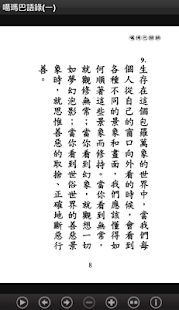 噶瑪巴語錄(一)
噶瑪巴語錄
9.
生存在這個包羅萬象的世界中，當我們每
個人從自己的窗口向外看的時候，會看到
各種不同的景象和畫面，我們應該懂得如
何順著這些景象當你看到無常，
就觀修無常；當你看到幻象，就觀想一切
如夢幻泡影；當你看到世俗世界的善惡現
象時，就思惟善惡的取捨、正確地斷惡行
善。
8